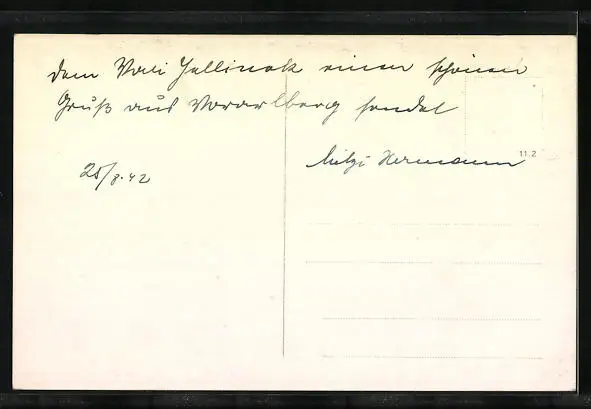 Dem Vali Jellinek einen schönen
Gruß aus Vorarlberg sendet
Mitzi Hermann
11.2
25/8.42